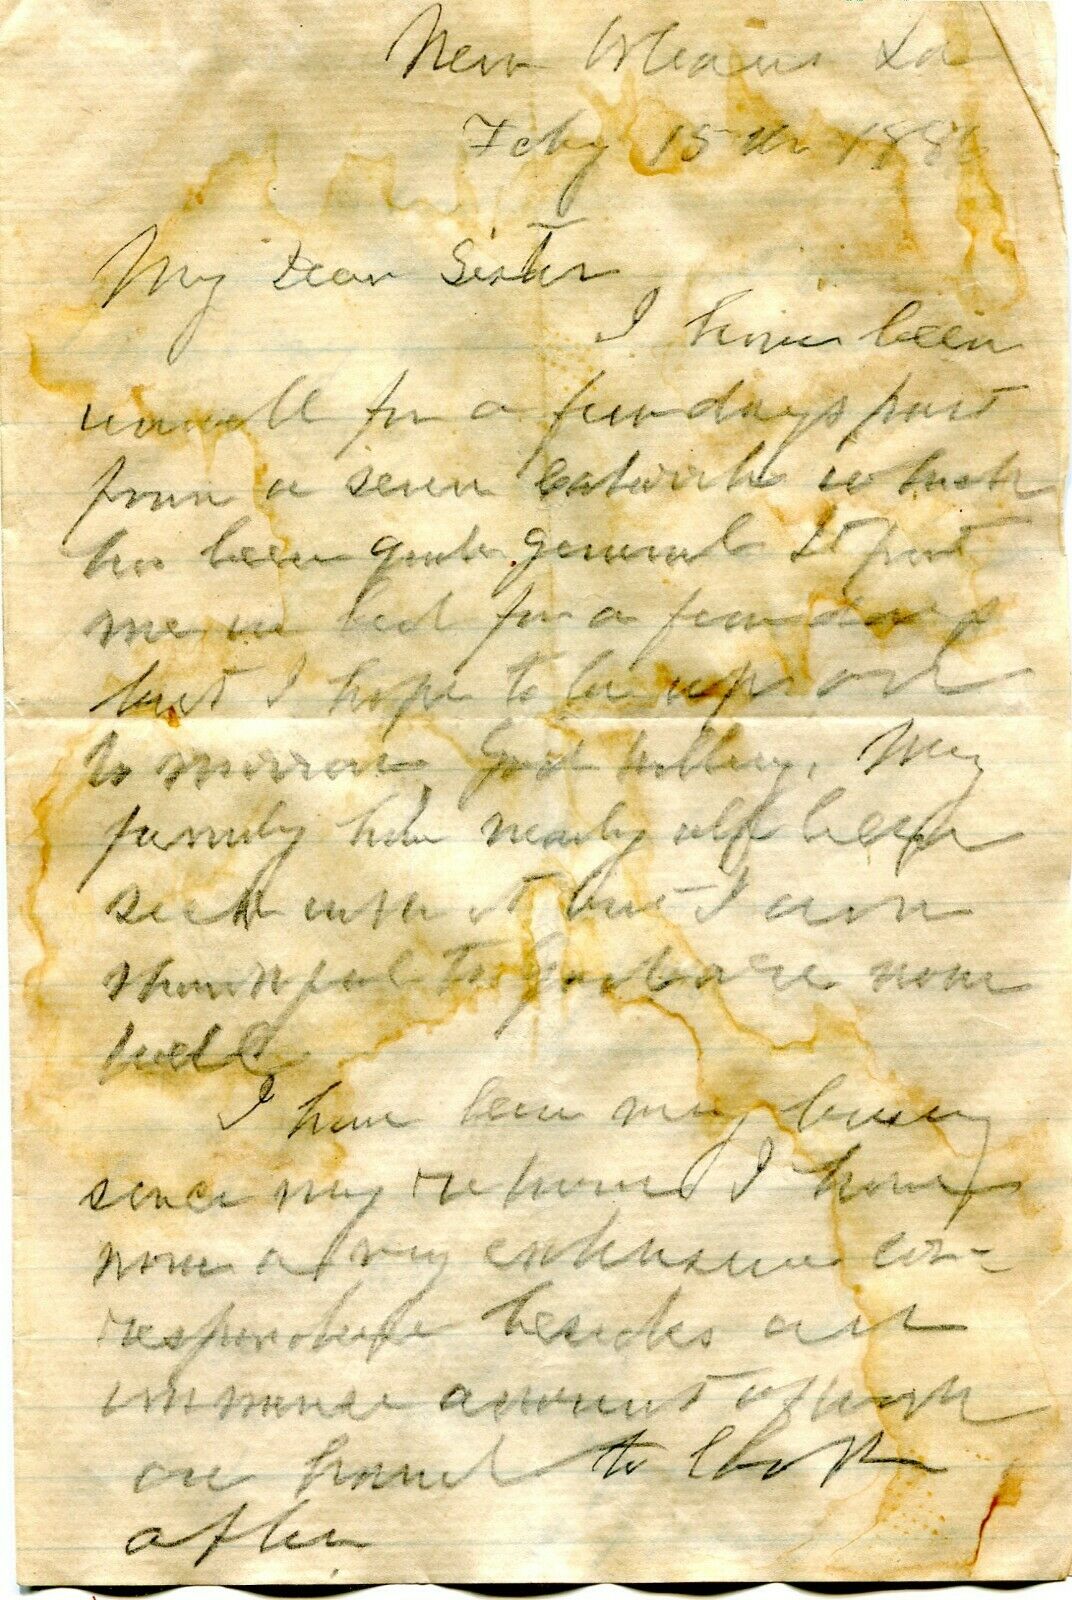 New Orleans La
Feby 15th 188
My Dear Sister
I have been
unwell for a few days past
from a which
has been quite general It put
me in bed for a few days
but I hope to be up
to morrow, God willing. My
family have nearly all been
sick with it but I am
thankful to God are now
well
I have been very busy
since my return I have
now a very extensive cor-
respondence besides an
immense amount of work
on hand to look
after